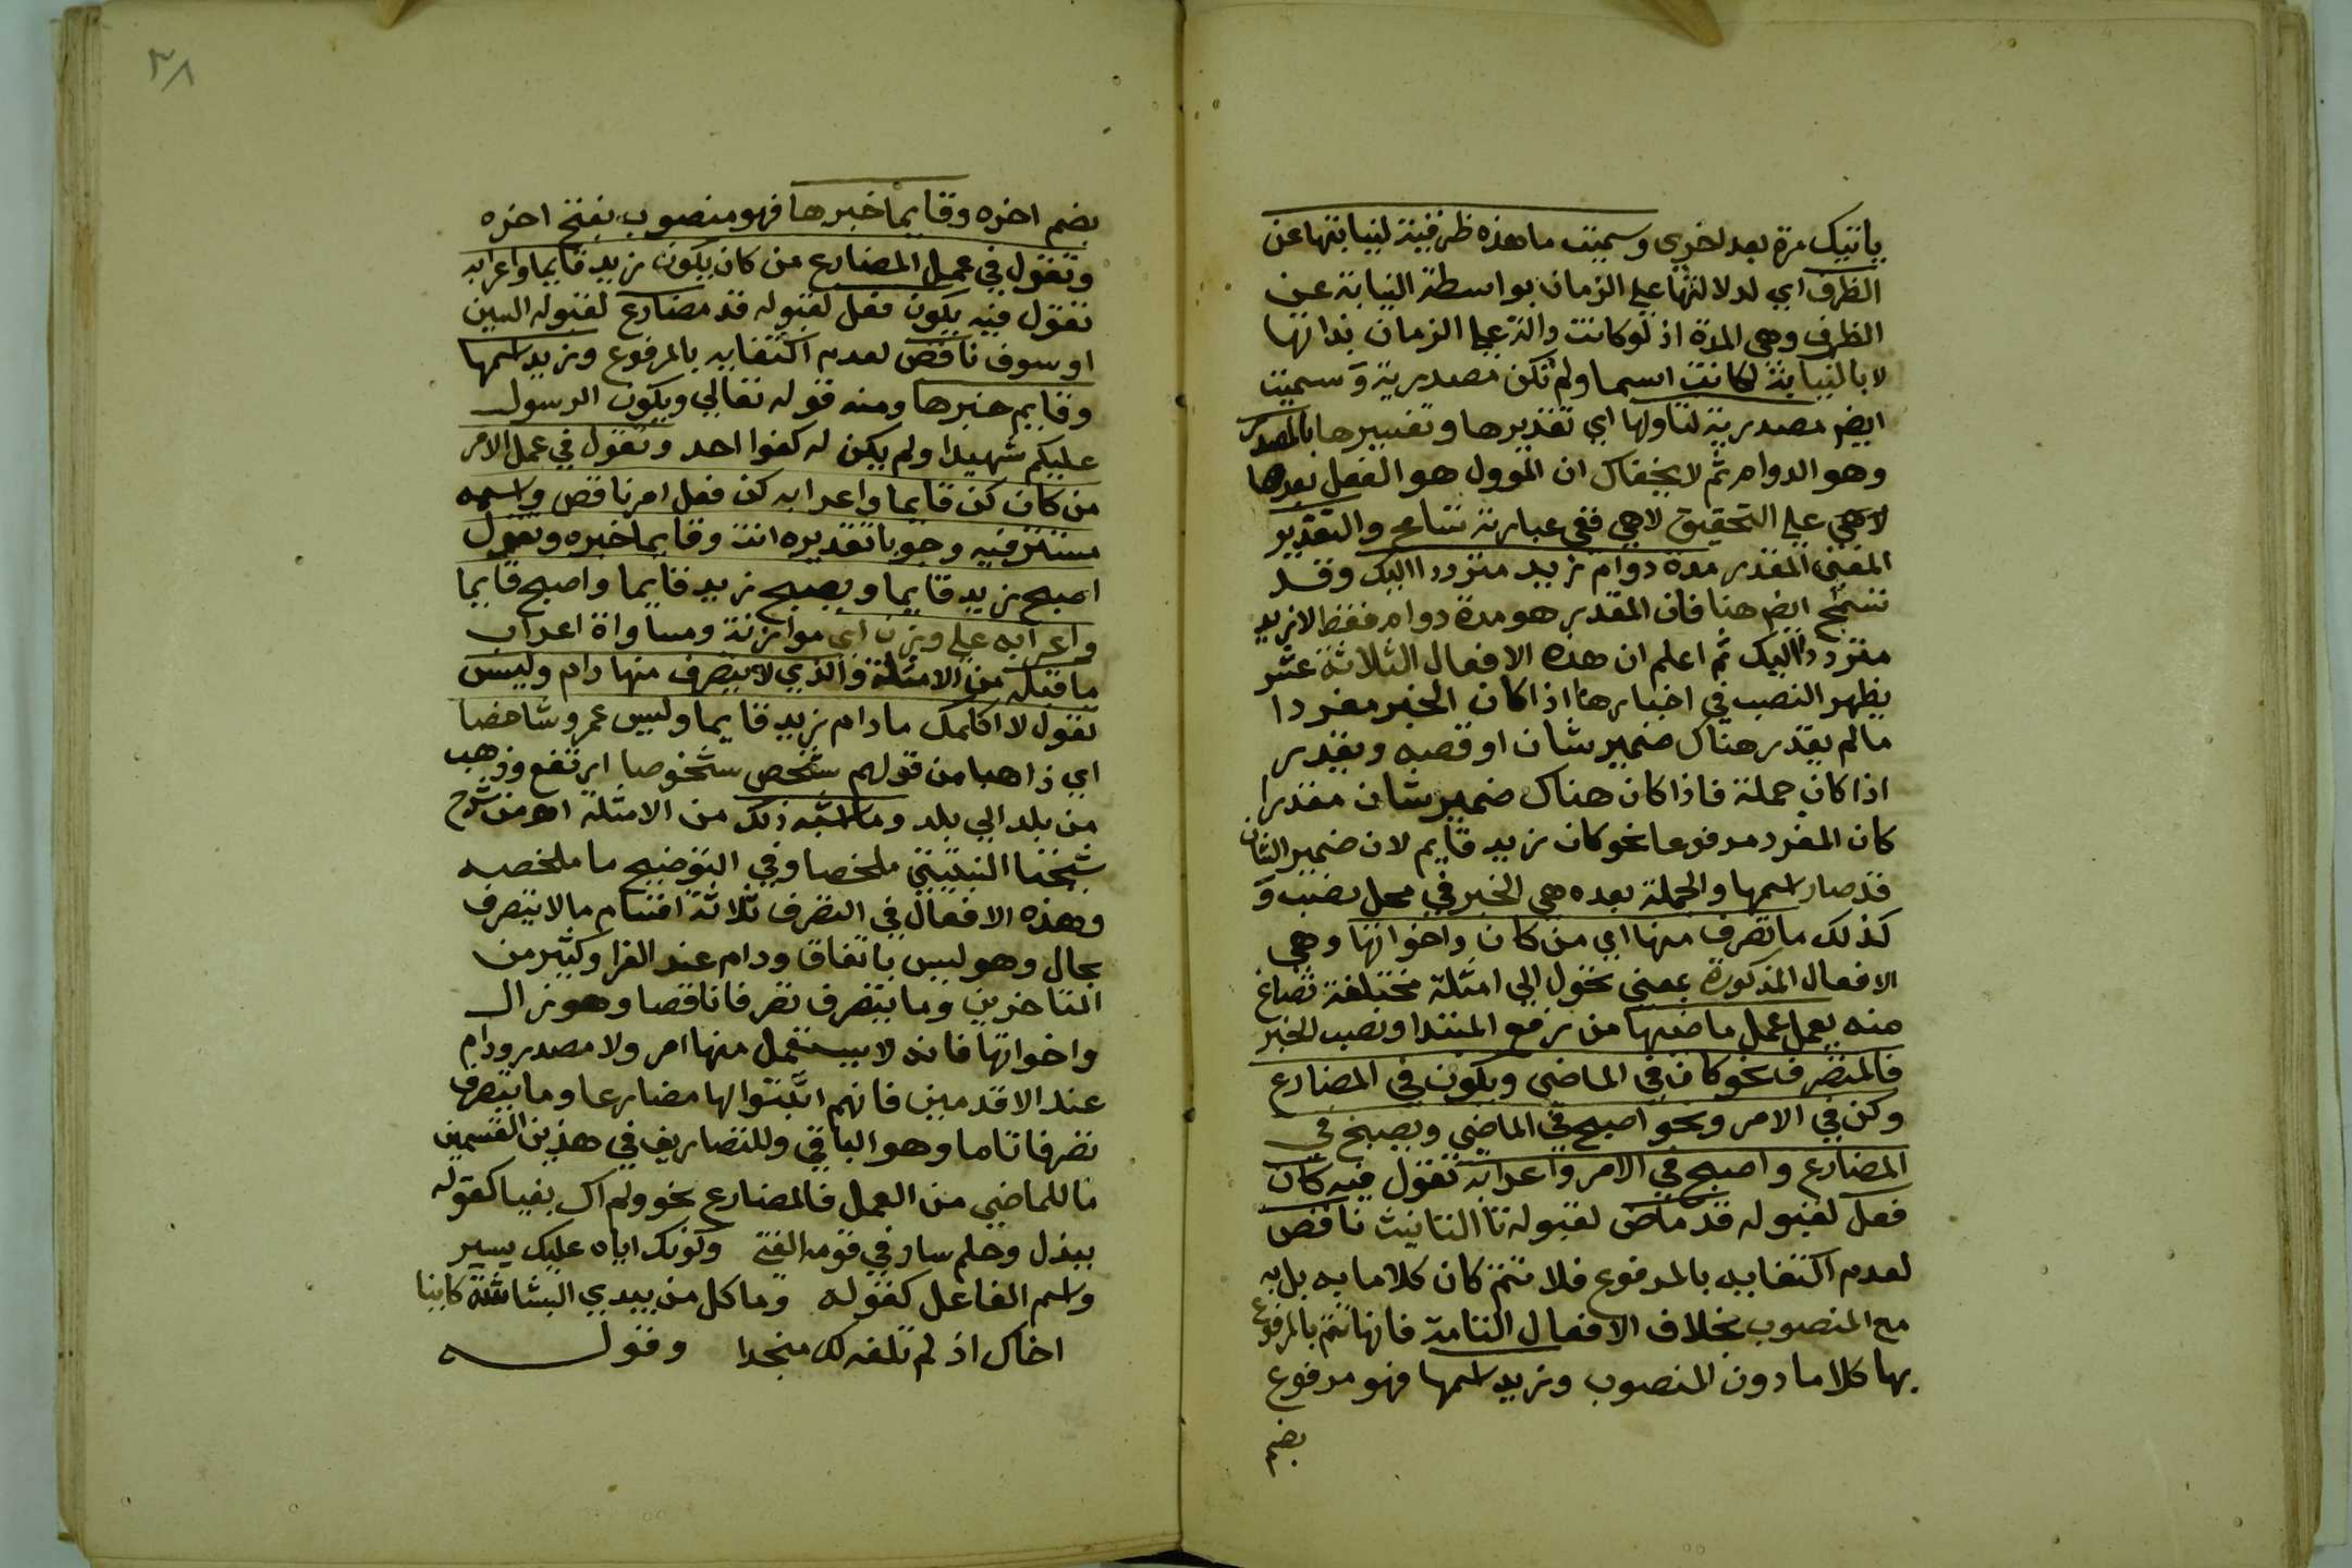 ياتيك مرة بعد اخري وسميت ما هذه ظرفية لنيابتها عن
الظرف اي لدلالتها علي الزمان بواسطة النيابة عن
الظرف وهي المدة اذ لو كانت دالة علي الزمان بذاتها
لا بالنيابة لكانت اسما ولم تكن مصدرية وسميت
ايض مصدرية لتاولها اي تقديرها وتفسيرها بالمصدر
وهو الدوام ثم لا يخفاك ان الموول هو الفعل بعدها
لا هي علي التحقيق لا هي ففي عبارته تسامح والتقدير
المعني المقدر مدة دوام زيد مترددا اليك وقد
تسمح ايض هنا فان المقدر هو مدة دوام فقط لا زيد
مترددا اليك ثم اعلم ان هذه الافعال الثلاثة عشر
يظهر النصب في اخبارها اذا كان الخبر مفردا
ما لم يقدر هناك ضمير شان او قصه ويقدر
اذا كان جملة فاذا كان هناك ضمير شان مقدرا
كان المفرد مرفوعا نحو كان زيد قايم لان ضمير الشان
قد صار اسمها والجملة بعده هي الخبر في محل نصب و
كذلك ما تصرف منها اي من كان واخواتها وهي
الافعال المذكورة بمعني تحول الي امثلة مختلفة تصاغ
منه يعمل عمل ماضيها من رفع المبتدا ونصب الخبر
فالمتصرف نحو كان في الماضي ويكون في المضارع
وكن في الامر ونحو اصبح في الماضي ويصبح في
المضارع واصبح في الامر واعرابه تقول فيه كان
فعل لقبوله قد ماض لقبوله تا التانيث ناقص
لعدم اكتفايه بالمرفوع فلا تتم كان كلاما به بل به
مع المنصوب بخلاف الافعال التامة فانها تتم بالمرفوع
بها كلاما دون المنصوب وزيد اسمها فهو مرفوع
بضم
٣٨
بضم اخره وقايما خبرها فهو منصوب بفتح اخره
وتقول في عمل المضارع من كان يكون زيد قايما واعرابه
تقول فيه يكون فعل لقبوله قد مضارع لقبوله السين
او سوف ناقص لعدم اكتفايه بالمرفوع وزيد اسمها
وقايم خبرها ومنه قوله تعالي ويكون الرسول
عليكم شهيدا ولم يكن له كفوا احد وتقول في عمل الامر
من كان كن قايما واعرابه كن فعل امر ناقص واسمه
مستتر فيه وجوبا تقديره انت وقايما خبره وتقول
اصبح زيد قايما ويصبح زيد قايما واصبح قايما
واعرابه علي وزن اي موازنة ومساواة اعراب
ما قبله من الامثلة والذي لا يتصرف منها دام وليس
تقول لا اكلمك ما دام زيد قايما وليس عمرو شاخصا
اي ذاهبا من قولهم شخص شخوصا ارتفع وذهب
من بلد الي بلد وما اشبه ذلك من الامثلة اه من شرح
شيخنا النبتيتي ملخصا وفي التوضيح ما ملخصه
وهذه الافعال في التصرف ثلاثة اقسام ما لا يتصرف
بحال وهو ليس باتفاق ودام عند الفرا وكثير من
المتاخرين وما يتصرف تصرفا ناقصا وهو زال
واخواتها فانه لا يستعمل منها امر ولا مصدر ودام
عند الاقدمين فانهم اثبتوا لها مضارعا وما يتصرف
تصرفا تاما وهو الباقي وللتصاريف في هذين القسمين
ما للماضي من العمل فالمضارع نحو ولم اك بغيا كقوله
ببذل وحلم ساد في قومه الفتي وكونك اياه عليك يسير
واسم الفاعل كقوله وما كل من يبدي البشاشة كاينا
اخاك اذ لم تلفه لك منجدا وقوله